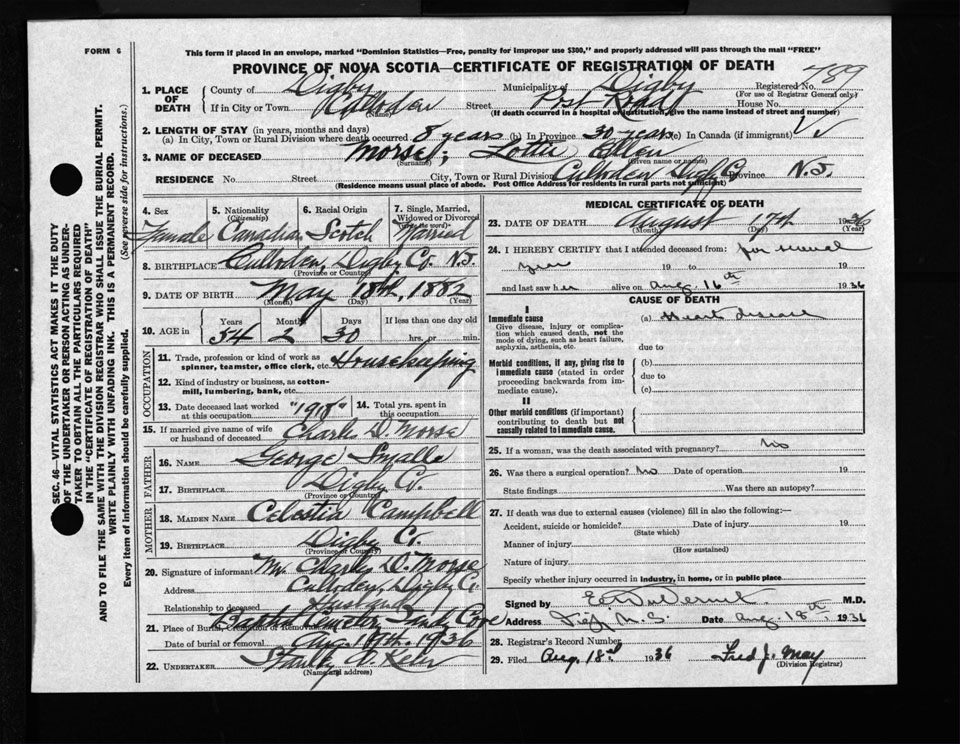 FORM 6
This form if placed in an envelope, marked "Dominion Statistics—Free, penalty for improper use $300," and properly addressed will pass through the mail "FREE"
PROVINCE OF NOVA SCOTIA—CERTIFICATE OF REGISTRATION OF DEATH
789
1. PLACE OF DEATH County of Digby Municipality Digby Registered No.
(For use of Registrar General only)
If in City or Town Culloden Street Post Road House No.
(Name) (If death occurred in a hospital or institution, give name instead of street and number)
2. LENGTH OF STAY (in years, months and days)
(a) In City, Town or Rural Division where death occurred 8 years (b) In Province 30 years (c) In Canada (if immigrant)
3. NAME OF DECEASED Morse, Lottie Ellen
(Surname) (Given name or names)
RESIDENCE No. Street City, Town or Rural Division Culloden Digby Co Province N.S.
(Residence means usual place of abode. Post Office Address for residents in rural parts not sufficient)
4. Sex Female
5. Nationality (Citizenship) Canadian
6. Racial Origin Scotch
7. Single, Married, Widowed or Divorced (write the word) Married
8. BIRTHPLACE Culloden, Digby Co. N.S.
(Province or Country)
9. DATE OF BIRTH May 18th, 1882
(Month) (Day) (Year)
10. AGE in Years Months Days If less than one day old
54 2 30 hrs. or min.
OCCUPATION
11. Trade, profession or kind of work as spinner, teamster, office clerk, etc. Housekeeping
12. Kind of industry or business, as cotton-mill, lumbering, bank, etc.
13. Date deceased last worked at this occupation "1918"
14. Total yrs. spent in this occupation
15. If married give name of wife or husband of deceased Charles D. Morse
FATHER
16. NAME George Smalle
17. BIRTHPLACE Digby Co.
(Province or Country)
MOTHER
18. MAIDEN NAME Celestia Campbell
19. BIRTHPLACE Digby Co.
(Province or Country)
20. Signature of informant Mr. Charles D. Morse
Address Culloden, Digby Co.
Relationship to deceased Husband
21. Place of Burial, Cremation or Removal Baptist Cemetery Sandy Cove
Date of burial or removal Aug. 19th. 1936
22. UNDERTAKER Stanley
(Name and address)
MEDICAL CERTIFICATE OF DEATH
23. DATE OF DEATH August 17th 1936
(Month) (Day) (Year)
24. I HEREBY CERTIFY that I attended deceased from: for several
years 19 to 19
and last saw her alive on Aug. 16th 1936
CAUSE OF DEATH
I
Immediate cause (a) Heart disease
Give disease, injury or complication which caused death, not the mode of dying, such as heart failure, asphyxia, asthenia, etc.
due to
Morbid conditions, if any, giving rise to immediate cause (stated in order proceeding backwards from immediate cause).
(b)
due to
(c)
II
Other morbid conditions (if important) contributing to death but not causally related to immediate cause.
25. If a woman, was the death associated with pregnancy? No
26. Was there a surgical operation? No Date of operation 19
State findings Was there an autopsy?
27. If death was due to external causes (violence) fill in also the following:—
Accident, suicide or homicide? Date of injury 19
(State which)
Manner of injury
(How sustained)
Nature of injury
Specify whether injury occurred in industry, in home, or in public place
Signed by M.D.
Address Digby N.S. Date Aug 18th 1936
28. Registrar's Record Number
29. Filed Aug. 18th 1936 Fred J. May
(Division Registrar)
SEC. 46—VITAL STATISTICS ACT MAKES IT THE DUTY
OF THE UNDERTAKER OR PERSON ACTING AS UNDER-
TAKER TO OBTAIN ALL THE PARTICULARS REQUIRED
IN THE "CERTIFICATE OF REGISTRATION OF DEATH"
AND TO FILE THE SAME WITH THE DIVISION REGISTRAR WHO SHALL ISSUE THE BURIAL PERMIT.
WRITE PLAINLY WITH UNFADING INK. THIS IS A PERMANENT RECORD.
Every item of information should be carefully supplied. (See reverse side for instructions.)